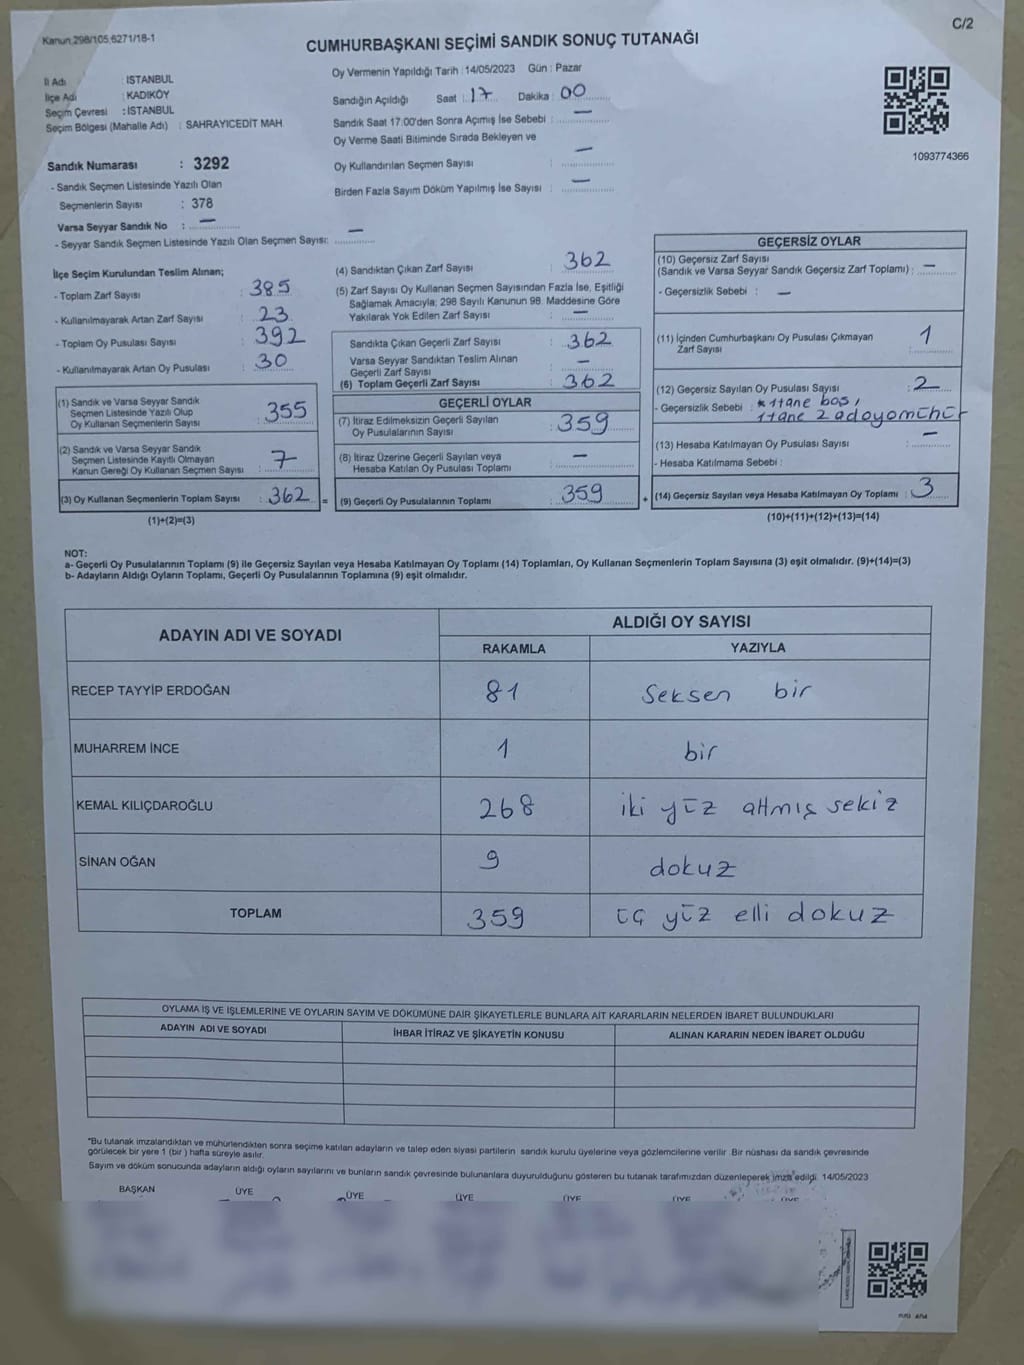 C/2
Kanun:298/105,6271/18-1
CUMHURBAŞKANI SEÇİMİ SANDIK SONUÇ TUTANAĞI
İl Adı : İSTANBUL
İlçe Adı : KADIKÖY
Seçim Çevresi : İSTANBUL
Seçim Bölgesi (Mahalle Adı) : SAHRAYICEDİT MAH.
Oy Vermenin Yapıldığı Tarih : 14/05/2023 Gün : Pazar
Sandığın Açıldığı Saat : 17 Dakika : 00
Sandık Saat 17:00'den Sonra Açımış İse Sebebi : —
Oy Verme Saati Bitiminde Sırada Bekleyen ve
Oy Kullandırılan Seçmen Sayısı : —
Birden Fazla Sayım Döküm Yapılmış İse Sayısı : —
1093774366
Sandık Numarası : 3292
- Sandık Seçmen Listesinde Yazılı Olan
Seçmenlerin Sayısı : 378
Varsa Seyyar Sandık No : —
- Seyyar Sandık Seçmen Listesinde Yazılı Olan Seçmen Sayısı: —
İlçe Seçim Kurulundan Teslim Alınan;
- Toplam Zarf Sayısı : 385
- Kullanılmayarak Artan Zarf Sayısı : 23
- Toplam Oy Pusulası Sayısı : 392
- Kullanılmayarak Artan Oy Pusulası : 30
(1) Sandık ve Varsa Seyyar Sandık
Seçmen Listesinde Yazılı Olup
Oy Kullanan Seçmenlerin Sayısı : 355
(2) Sandık ve Varsa Seyyar Sandık
Seçmen Listesinde Kayıtlı Olmayan
Kanun Gereği Oy Kullanan Seçmen Sayısı : 7
(3) Oy Kullanan Seçmenlerin Toplam Sayısı : 362 =
(1)+(2)=(3)
(4) Sandıktan Çıkan Zarf Sayısı : 362
(5) Zarf Sayısı Oy Kullanan Seçmen Sayısından Fazla İse, Eşitliği
Sağlamak Amacıyla; 298 Sayılı Kanunun 98. Maddesine Göre
Yakılarak Yok Edilen Zarf Sayısı : —
Sandıkta Çıkan Geçerli Zarf Sayısı : 362
Varsa Seyyar Sandıktan Teslim Alınan
Geçerli Zarf Sayısı : —
(6) Toplam Geçerli Zarf Sayısı : 362
GEÇERLİ OYLAR
(7) İtiraz Edilmeksizin Geçerli Sayılan
Oy Pusulalarının Sayısı : 359
(8) İtiraz Üzerine Geçerli Sayılan veya
Hesaba Katılan Oy Pusulası Toplamı : —
(9) Geçerli Oy Pusulalarının Toplamı : 359 +
GEÇERSİZ OYLAR
(10) Geçersiz Zarf Sayısı
(Sandık ve Varsa Seyyar Sandık Geçersiz Zarf Toplamı) : —
- Geçersizlik Sebebi : —
(11) İçinden Cumhurbaşkanı Oy Pusulası Çıkmayan
Zarf Sayısı : 1
(12) Geçersiz Sayılan Oy Pusulası Sayısı : 2
- Geçersizlik Sebebi : * 1 tane boş,
1 tane 2 adaya mühür
(13) Hesaba Katılmayan Oy Pusulası Sayısı : —
- Hesaba Katılmama Sebebi :
(14) Geçersiz Sayılan veya Hesaba Katılmayan Oy Toplamı : 3
(10)+(11)+(12)+(13)=(14)
NOT:
a- Geçerli Oy Pusulalarının Toplamı (9) ile Geçersiz Sayılan veya Hesaba Katılmayan Oy Toplamı (14) Toplamları, Oy Kullanan Seçmenlerin Toplam Sayısına (3) eşit olmalıdır. (9)+(14)=(3)
b- Adayların Aldığı Oyların Toplamı, Geçerli Oy Pusulalarının Toplamına (9) eşit olmalıdır.
ADAYIN ADI VE SOYADI
ALDIĞI OY SAYISI
RAKAMLA YAZIYLA
RECEP TAYYİP ERDOĞAN 81 Seksen bir
MUHARREM İNCE 1 bir
KEMAL KILIÇDAROĞLU 268 iki yüz altmış sekiz
SİNAN OĞAN 9 dokuz
TOPLAM 359 üç yüz elli dokuz
OYLAMA İŞ VE İŞLEMLERİNE VE OYLARIN SAYIM VE DÖKÜMÜNE DAİR ŞİKAYETLERLE BUNLARA AİT KARARLARIN NELERDEN İBARET BULUNDUKLARI
ADAYIN ADI VE SOYADI İHBAR İTİRAZ VE ŞİKAYETİN KONUSU ALINAN KARARIN NEDEN İBARET OLDUĞU
*Bu tutanak imzalandıktan ve mühürlendikten sonra seçime katılan adayların ve talep eden siyasi partilerin sandık kurulu üyelerine veya gözlemcilerine verilir .Bir nüshası da sandık çevresinde
görülecek bir yere 1 (bir ) hafta süreyle asılır.
Sayım ve döküm sonucunda adayların aldığı oyların sayılarını ve bunların sandık çevresinde bulunanlara duyurulduğunu gösteren bu tutanak tarafımızdan düzenlenerek imza edildi. 14/05/2023
BAŞKAN ÜYE ÜYE ÜYE ÜYE ÜYE ÜYE